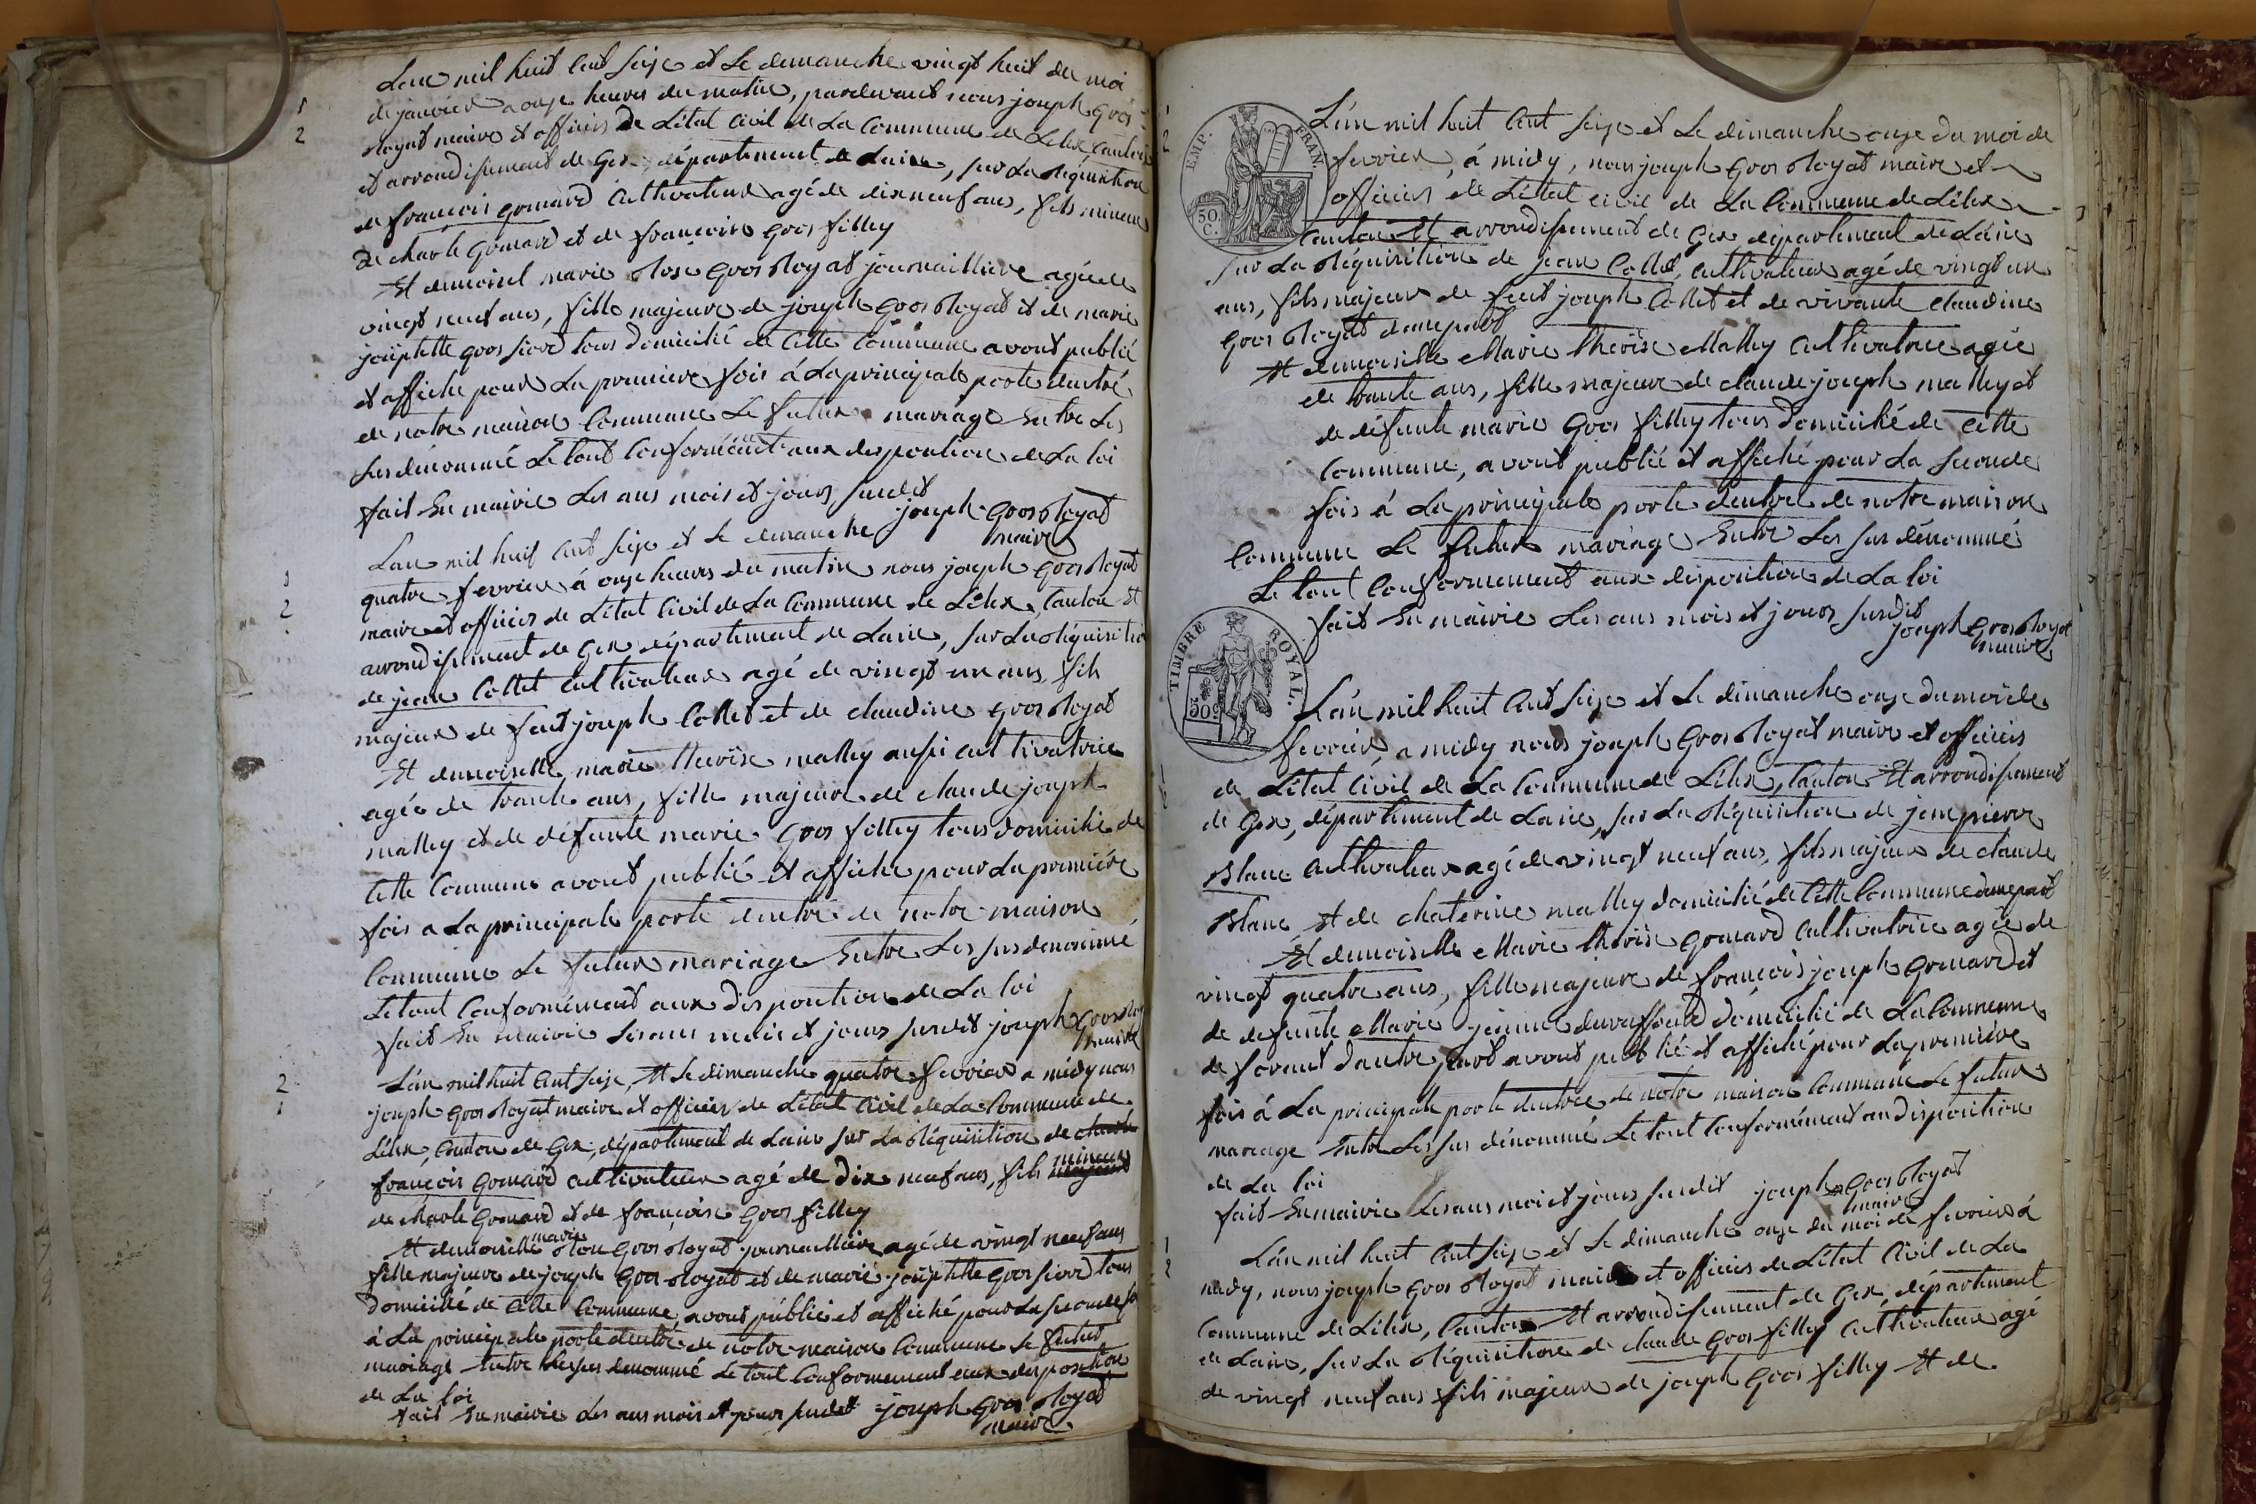 L'an mil huit Cent seize et Le dimanche vingt huit du moi
de janvier a onze heures du matin, pardevant nous joseph Gros
Royat maire et officiers de L'état Civil de La Commune de Lélex Canton
et arrondisement de Gex, département de Laine, sur La Réquisition
de francois gomard Cultivateur agé de dixneuf ans, fils mineur
de charle Gomard et de francoise Gros filley
Et demoisel marie Rose Gros Royat journaillière agée de
vingt neuf ans, fille majeure de joseph Gros Royat et de marie
josephtette gros fiord tous domicilié de Cette Commune avont publié
et affiché pour La première fois á La principale porte dentré
de notre maison Commune Le futur mariage Entre Les
susdénommé Le tout Conformément aux disposition de La loi
fait En mairie Les ans mois et jours susdit
joseph Gros Royat
maire
1
2
Lan mil huit Cent seize et le dimanche
quatre fevrier á onze heures du matin nous joseph Gros Royat
maire et officiers de L'état Civil de La Commune de Lélex, Canton Et
arrondisement de Gex département de Laine, sur La Réquisition
de jean Collet Cultivateur agé de vingt un ans, fils
majeur de feut joseph Collet et de claudine Gros Royat
Et demoiselle marie therèse malley aussi Cultivatrice
agée de trante ans, fille majeure de claude joseph
malley et de défunte marie Gros filley tous domicilié de
Cette Commune avont publié et affiché pour La première
fois a La principale porte dentré de notre maison
Commune Le futur mariage Entre Les susdénommé
Le tout Conformément aux disposition de La loi
fait En mairie Les ans mois et jours susdit joseph Gros Roy
maire
1
2
L'an mil huit Cent seize, Et Le dimanche quatre fevrier a midy nous
joseph Gros Royat maire et officier de L'état Civil de La Commune de
Lélex, Canton de Gex, département de Laine sur La Réquisition de charle
francois Gomard Cultivateur agé de dix neuf ans, fils majeur mineur
de charle Gomard et de françoise Gros filley
Et demoiselle marie Rose Gros Royat journaillière agée de vingt neuf ans
fille majeure de joseph Gros Royat et de marie josephtette Gros fiord tous
domicilié de Cette Commune, avont publié et affiché pour La seconde fo
á La principale porte dentré de notre maison Commune Le futur
mariage Entre Les sus dénommé Le tout Conformément aux disposition
de La loi
fait En mairie Les ans mois et jour susdit joseph Gros Royat
maire
2
1
IMP. FRAN.
50. C.
1
2
L'an mil huit Cent seize et Le dimanche onze du moi de
fevrier, á midy, nous joseph Gros Royat maire et
officiers de L'état civil de La Commune de Lélex
Canton Et arrondisement de Gex département de Laine
sur La Réquisition de jean Collet, Cultivateur agé de vingt un
ans, fils majeur de feut joseph Collet et de vivante claudine
Gros Royat dune part
Et demoiselle Marie therèse Malley Cultivatrice agée
de trante ans, fille majeure de claude joseph malley et
de défunte marie Gros filley tous domicilié de Cette
Commune, avont publié et affiché pour La seconde
fois á La principale porte dentré de notre maison
Commune Le futur mariage Entre Les sus dénommé
Le tout Conformément aux disposition de La loi
fait En mairie Les ans mois et jours susdit
joseph Gros Royat
maire
TIMBRE ROYAL.
50c
L'an mil huit Cent seize et Le dimanche onze du moi de
fevrier, a midy nous joseph Gros Royat maire et officiers
de L'état Civil de La Commune de Lélex, Canton Et arrondisement
de Gex, département de Laine, sur La Réquisition de jean pierre
Blanc Cultivateur agé de vingt neuf ans, fils majeur de claude
Blanc, et de chaterine malley domicilié de Cette Commune dune part
Et demoiselle Marie therèse Gomard Cultivatrice agée de
vingt quatre ans, fille majeure de francois joseph Gomard et
de defunte Marie domicilié de La Commune
de forent dautre part avont publié et affiché pour La première
fois á La principale porte dentrée de notre maison Commune Le futur
mariage Entre Les sus dénommé Le tout Conformément au disposition
de La loi
fait En mairie Les ans moi et jours susdit joseph Gros Royat
maire
1
2
L'an mil huit Cent seize et Le dimanche onze du moi de fevrier á
midy, nous joseph Gros Royat maire et officiers de L'état Civil de La
Commune de Lélex, Canton Et arrondisement de Gex, département
de Laine, sur La Réquisition de claude Gros filley Cultivateur agé
de vingt neuf ans fils majeur de joseph Gros filley Et de